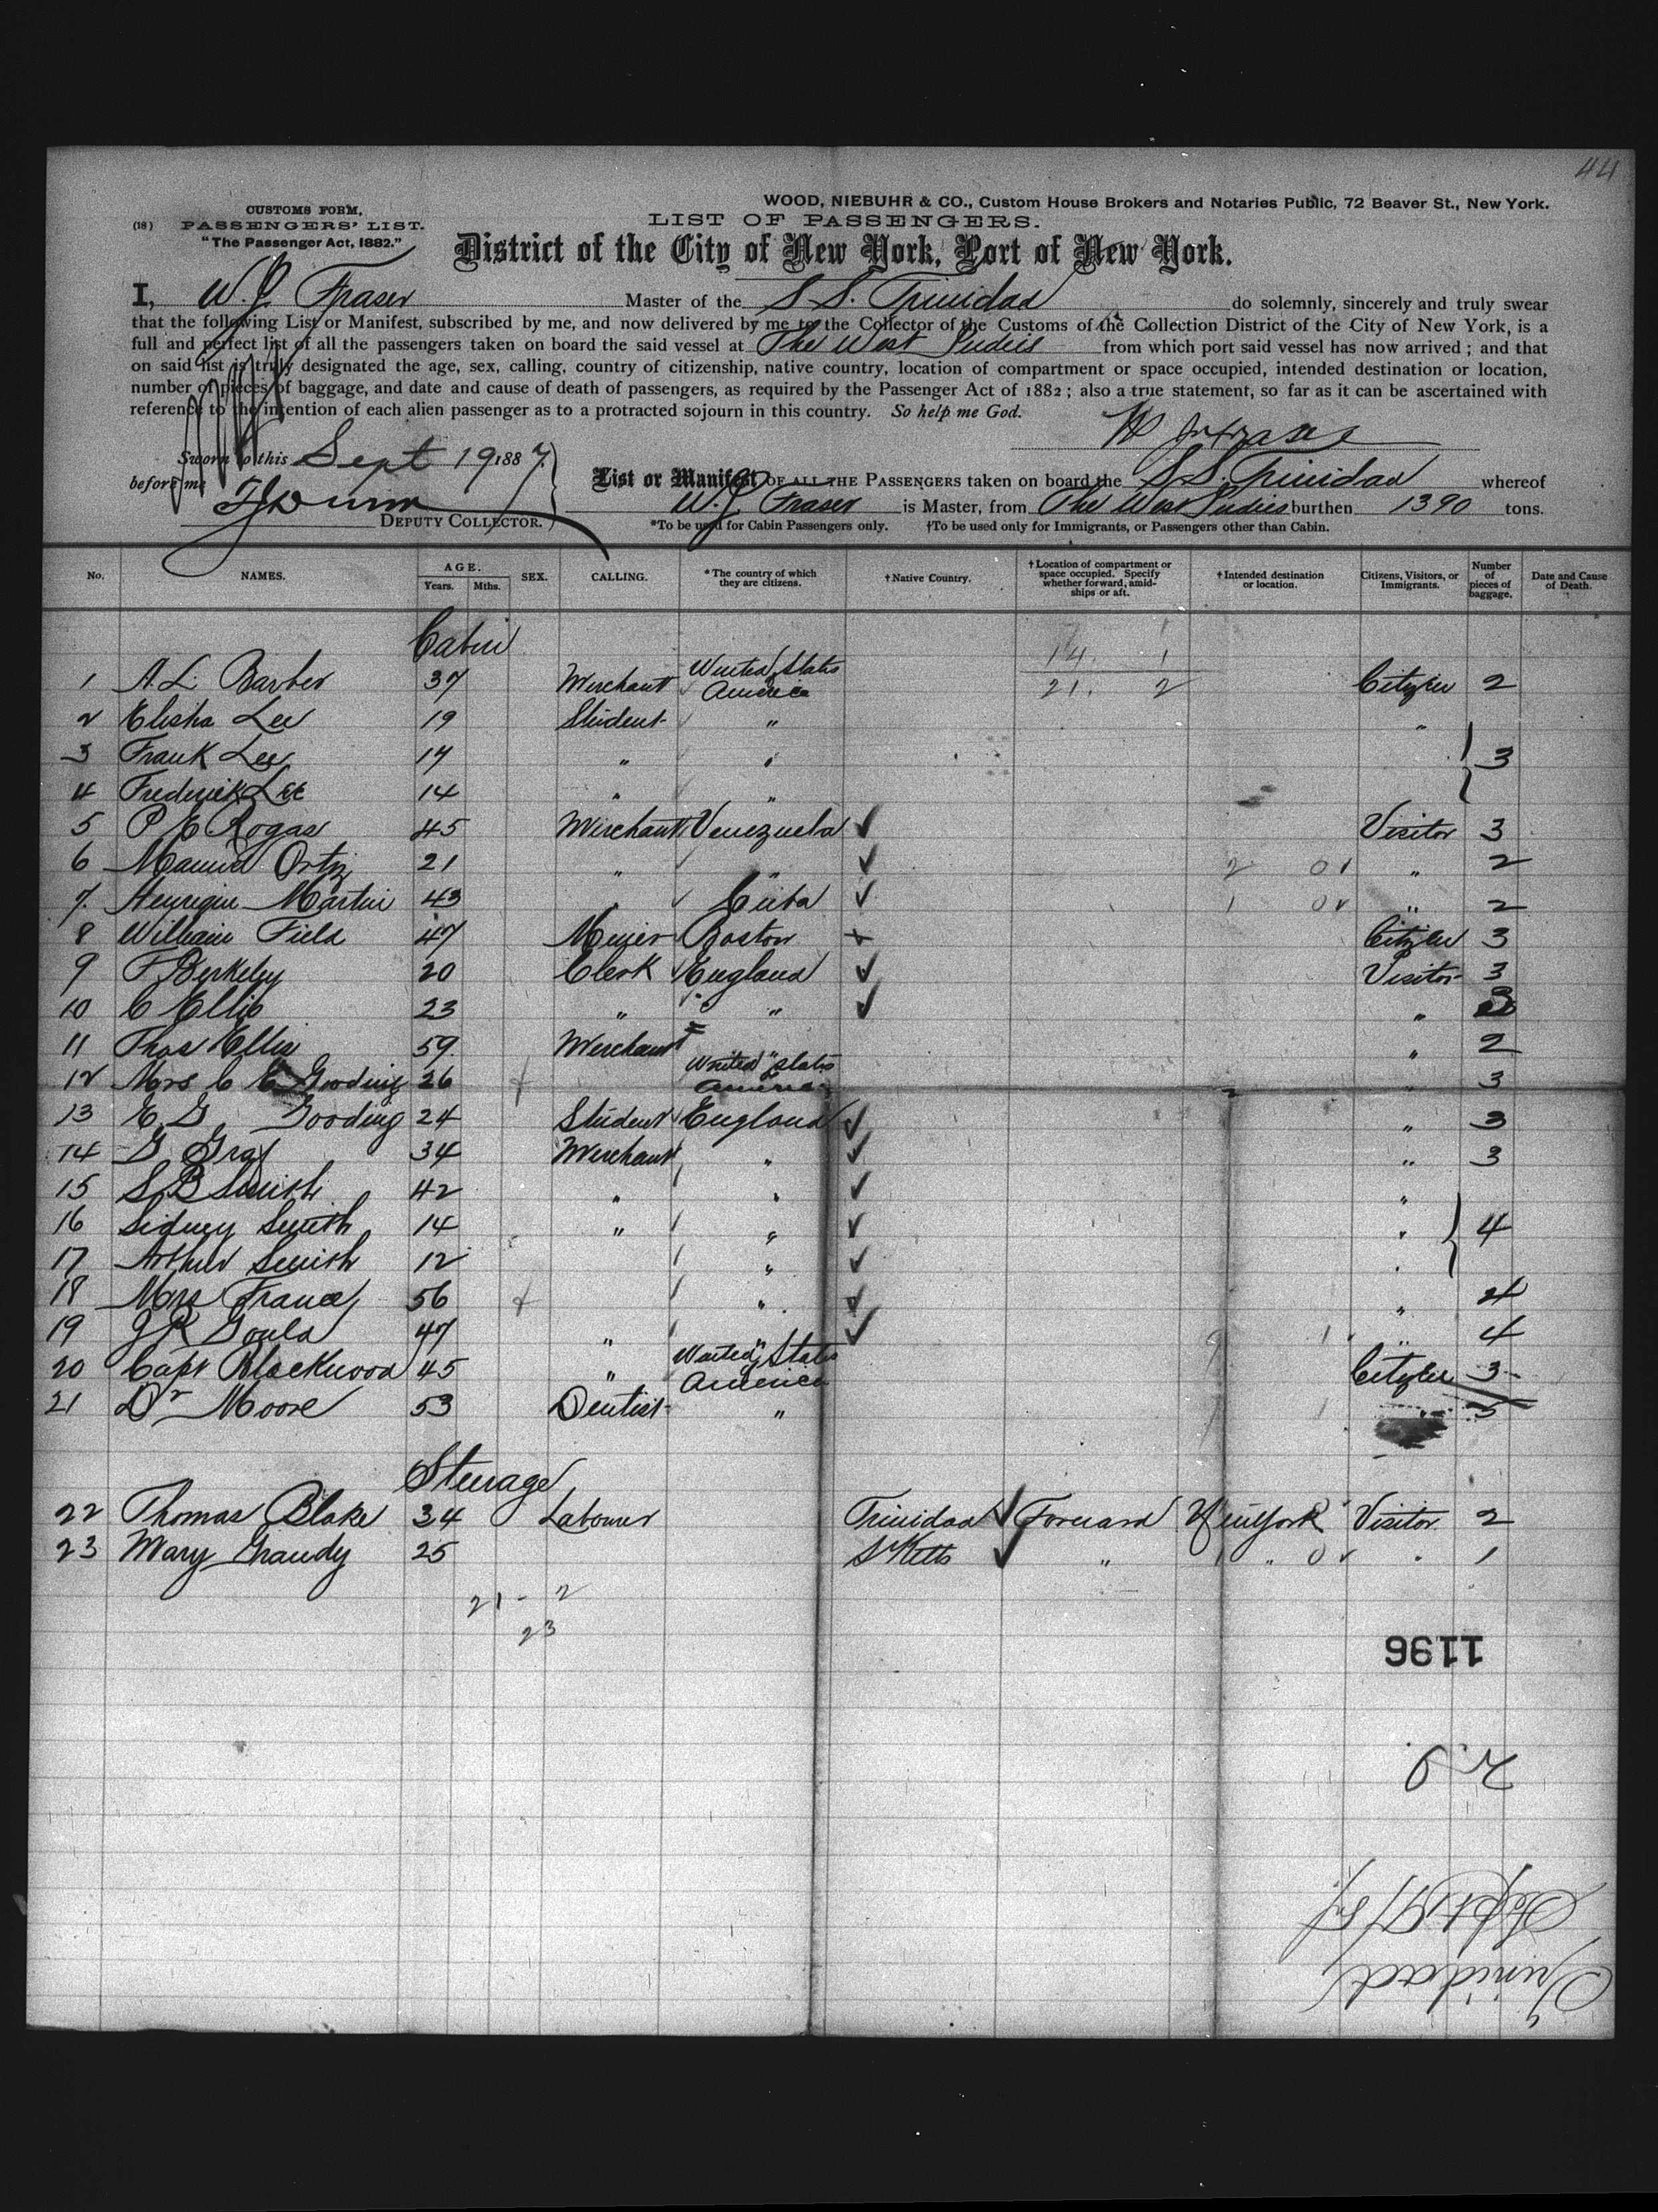 44
WOOD, NIEBUHR & CO., Custom House Brokers and Notaries Public, 72 Beaver St., New York.
CUSTOMS FORM,
(18) PASSENGERS' LIST.
"The Passenger Act, 1882."
LIST OF PASSENGERS.
District of the City of New York, Port of New York.
I, W. J. Fraser Master of the S S. Trinidad do solemnly, sincerely and truly swear
that the following List or Manifest, subscribed by me, and now delivered by me to the Collector of the Customs of the Collection District of the City of New York, is a
full and perfect list of all the passengers taken on board the said vessel at The West Indies from which port said vessel has now arrived ; and that
on said list is truly designated the age, sex, calling, country of citizenship, native country, location of compartment or space occupied, intended destination or location,
number of pieces of baggage, and date and cause of death of passengers, as required by the Passenger Act of 1882 ; also a true statement, so far as it can be ascertained with
reference to the intention of each alien passenger as to a protracted sojourn in this country. So help me God.
W J Fraser
Sworn to this Sept 19 1887.
before me
DEPUTY COLLECTOR.
List or Manifest OF ALL THE PASSENGERS taken on board the S. S. Trinidad whereof
W. J. Fraser is Master, from The West Indies burthen 1390 tons.
*To be used for Cabin Passengers only. †To be used only for Immigrants, or Passengers other than Cabin.
No. NAMES. AGE. Years. Mths. SEX. CALLING. *The country of which they are citizens. †Native Country. †Location of compartment or space occupied. Specify whether forward, amidships or aft. †Intended destination or location. Citizens, Visitors, or Immigrants. Number of pieces of baggage. Date and Cause of Death.
Cabin
14. 1
21. 2
1 A. L. Barber 37 Merchant United States America Citizen 2
2 Elisha Lee 19 Student " "
3 Frank Lee 17 " " 3
4 Frederick Lee 14 " "
5 P E Rogas 45 Merchant Venezuela ✓ Visitor 3
6 Ortiz 21 " " ✓ 2 01 " 2
7. Martin 43 " Cuba ✓ 1 0v " 2
8 William Field 47 Miner Boston + Citizen 3
9 F Berkeley 20 Clerk England ✓ Visitor 3
10 C Ellis 23 " " ✓ "
11 Thos Ellis 59 Merchant " " 2
12 Mrs C E Gooding 26 + United States America " 3
13 E G Gooding 24 Student England ✓ " 3
14 G Gray 34 Merchant " ✓ " 3
15 S B Smith 42 " " ✓ "
16 Sidney Smith 14 " " ✓ " 4
17 Arthur Smith 12 " ✓ "
18 Mrs 56 + " ✓ " 4
19 J R Gould 47 " " ✓ 9 1 " 4
20 Capt Blackwood 45 " United States America Citizen 3
21 Dr Moore 53 Dentist " 1 1 5
Steerage
22 Thomas Blake 34 Labourer Trinidad ✓ Forward New York Visitor 2
23 Mary Grandy 25 St Kitts ✓ " 1 " 0v " 1
21 - 2
23
1196
Sept 19/87
Trinidad